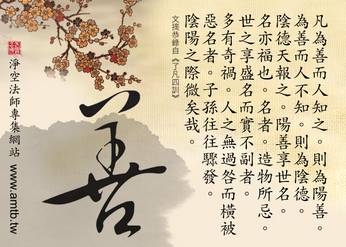 凡為善而人知之。則為陽善。
為善而人不知。則為陰德。
陰德天報之。陽善享世名。
名亦福也。名者。造物所忌。
世之享盛名而實不副者。
多有奇禍。人之無過咎而橫被
惡名者。子孫往往驟發。
陰陽之際微矣哉。
文摘恭錄自《了凡四訓》
善
淨空法師專集網站
www.amtb.tw